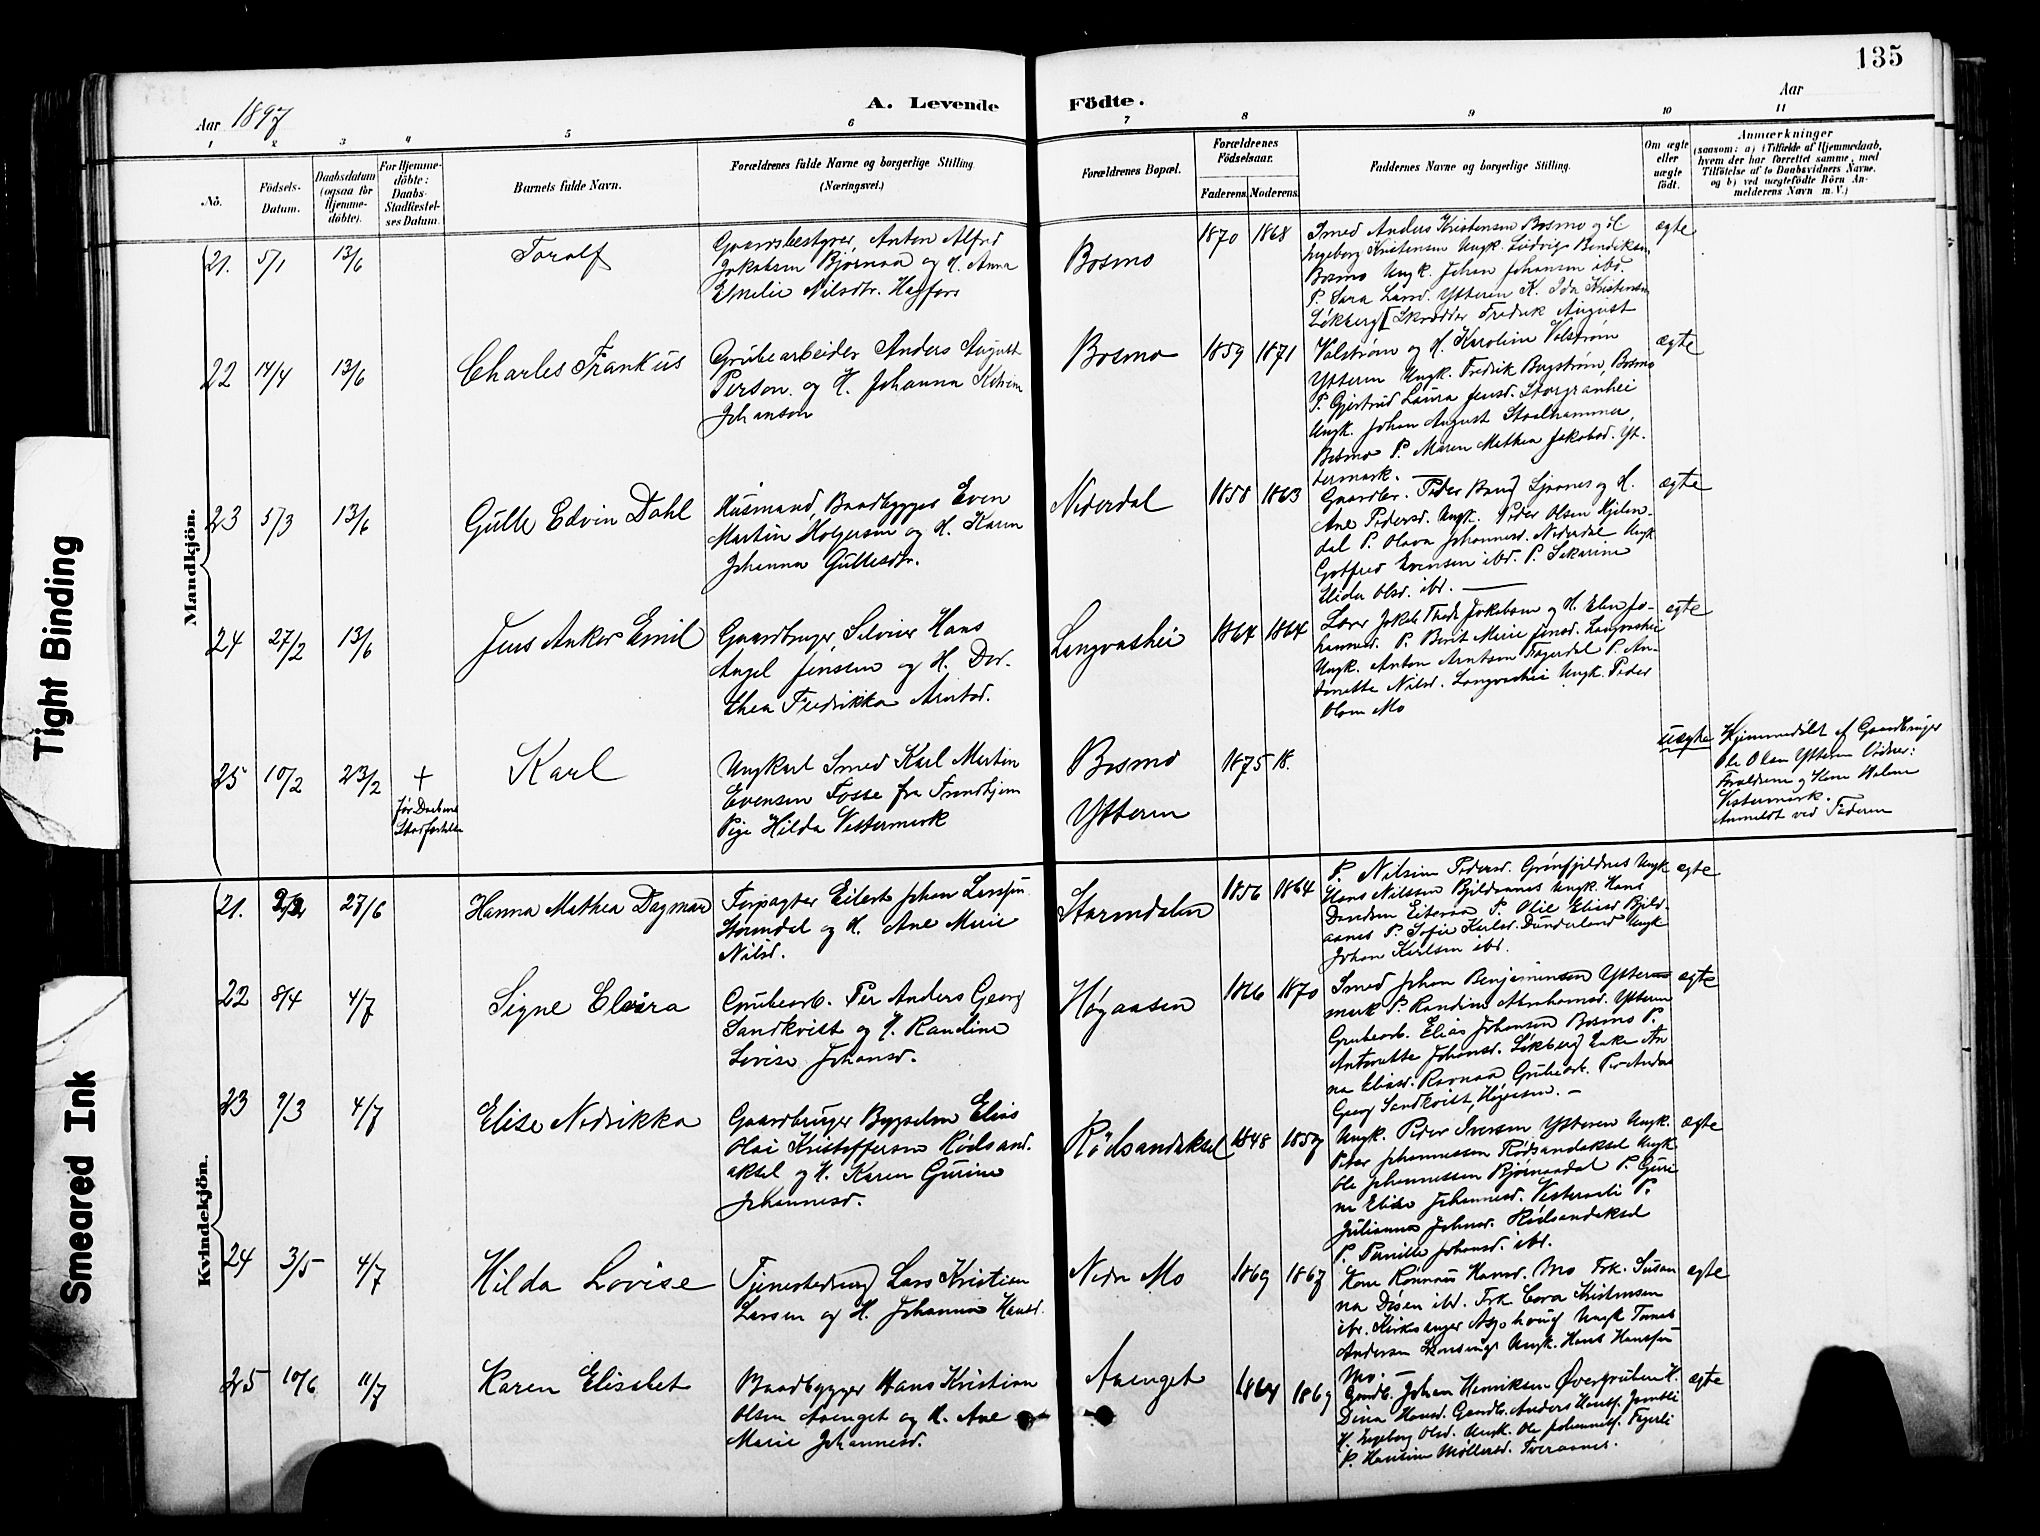 135
Aar 1897
A. Levende Födte.
Aar
1 2 3 4 5 6 7 8 9 10 11
No.
Födsels-Datum.
Daabsdatum (ogsaa for Hjemme-döbte).
For Hjemme-döbte: Daabs-Stadfæstel-ses Datum.
Barnets fulde Navn.
Forældrenes fulde Navne og borgerlige Stilling. (Næringsvei.)
Forældrenes Bopæl.
Forældrenes Födselsaar.
Faderens. Moderens.
Faddernes Navne og borgerlige Stilling.
Om ægte eller uægte födt.
Anmærkninger
(saasom: a) i Tilfælde af Hjemmedaab, hvem der har forrettet samme, med Tilföielse af to Daabsvidners Navne, og b) ved uægtefödte Börn An-melderens Navn m. V.)
Mandkjön.
21. 5/1 13/6 Toralf
Gaardsbestyrer, Anton Alfred
Jakobsen Bjørnaa og H. Anna
Emelie Nilsdtr. Hagfors
Bosmo
1870 1868
Smed Anders Kristensen Bosmo og H
Ingeborg Kristensen Ungk. Ludvig Bendiksen
Bosmo Ungk. Johan Johansen ibd.
P. Sara Larsd. Ytteren K. Ida Kristensen
Løkberg [Skrædder Fredrik August
ægte
22 14/4 13/6 Charles Frankus
Grubearbeider Anders August
Person og H. Johanna Katrine
Johanson
Bosmo
1859 1871
Valstrøm og H. Karoline Valstrøm
Ytteren Ungk. Fredrik Bergstrøm, Bosmo
P. Gjertrud Laura Jensd. Storgranhei
Ungk. Johan August Staalhammer,
Bosmo P. Maren Mathea Jakobsd. Yt-
termark.
ægte
23 5/3 13/6 Gulle Edvin Dahl
Husmand, Baadbygger Even
Martin Holgersen og H. Karen
Johanna Gullesdtr.
Nederdal
1858 1863
Gaardbr. Peder Bang Sjonnes og H.
Ane Pedersd. Ungk. Peder Olsen Hjelen-
dal P. Olava Johannesd. Nederdal Ungk
Gotfred Evensen ibd. P. Sekarine
Olsd. ibd.
ægte
24 27/2 13/6 Jens Anker Emil
Gaardbruger, Selveier Hans
Angel Jenssen og H. Dor-
thea Fredrikka Arntsd.
Langvashei
1864 1864
Lærer Jakob Jakobsen og H. Elen Jo-
hannesd. P. Berit Marie Jensd. Langvashei
Ungk. Anton Arntsen Fagerdal P. An-
tonette Nilsd. Langvashei Ungk. Peder
Olsen Mo
ægte
25 10/2 23/2 +
før Daabens
Stadfæstelse
Karl
Ungkarl Smed Karl Martin
Evensen Fosse fra Trondhjem
Pige Hilda Vestermark
Bosmo
Ytteren
1875 18
uægte
Hjemmedøbt af Gaardbruger
Ole Olsen Ytteren Vidner:
Forældrene og Kone
Vestermark.
Anmeldt ved Faderen
Kvindekjön.
21. 2/2 27/6 Hanna Mathea Dagmar
Forpagter Eilert Johan Larssen
Stormdal og H. Ane Marie
Nilsd.
Stormdalen
1856 1864
P. Nilsine Pedersd. Grønfjeldnes Ungk
Hans Nilssen Bjeldaanes Ungk. Hans
Eiteraa P. Olie Eliasd Bjeld-
aanes P. Sofie Karlsd. Dunderland Ungk
Johan Karlsen ibd.
ægte
22 8/4 4/7 Signe Elvira
Grubearb. Per Anders Georg
Sandkvist og H. Randine
Lovise Johansd.
Høgaasen
1866 1870
Smed Johan Benjaminsen Ytter-
mark P. Randine Abrahamsd. Ytteren
Grubearb. Elias Johansen Bosmo P.
Antonette Johansd. Løkberg Enke An-
na Eliasd. Ravnaa Grubearb. Per Anders
Georg Sandkvist, Høgaasen.
ægte
23 9/3 4/7 Elise Nedrikka
Gaardbruger Bygselm Elias
Olai Kristoffersen Rødsand-
aksel og H. Karen Gurine
Johannesd.
Rødsandaksel
1848 1859
Ungk. Peder Iversen Ytteren Ungk.
Peter Johannessen Rødsandaksel Ungk
Ole Johannessen Bjørnaadal P. Guri-
ne Elise Johannesd. P.
Julianna Johansd. Rødsandaksel
P. Pernille Johansd. ibd.
ægte
24 3/5 4/7 Hilda Lovise
Tjenestedreng Lars Kristian
Larsen og H. Johanna Hansd.
Nedre Mo
1869 1867
Kone Rønnaug Hansd. Mo Frk. Susan
na Døsen ibd. Frk. Cora Kristensen
ibd. Kirkesanger Ungk Tomas
Andersen Ungk. Hans Hanssen
Mo.
ægte
25 10/6 11/7 Karen Elisabet
Baadbygger Hans Kristian
Olsen Avenget og H. Ane
Marie Johannesd.
Avenget
1864 1869
Gaardb. Johan Henriksen Øvergruben H.
Dina Hansd. Gaardb. Anders Hansf.
H. Ingeborg Olsd. Ungk. Ole Johannesf. Fagerli
P. Hansine Møllersd. Tveraanes.
ægte
Tight Binding
Smeared Ink